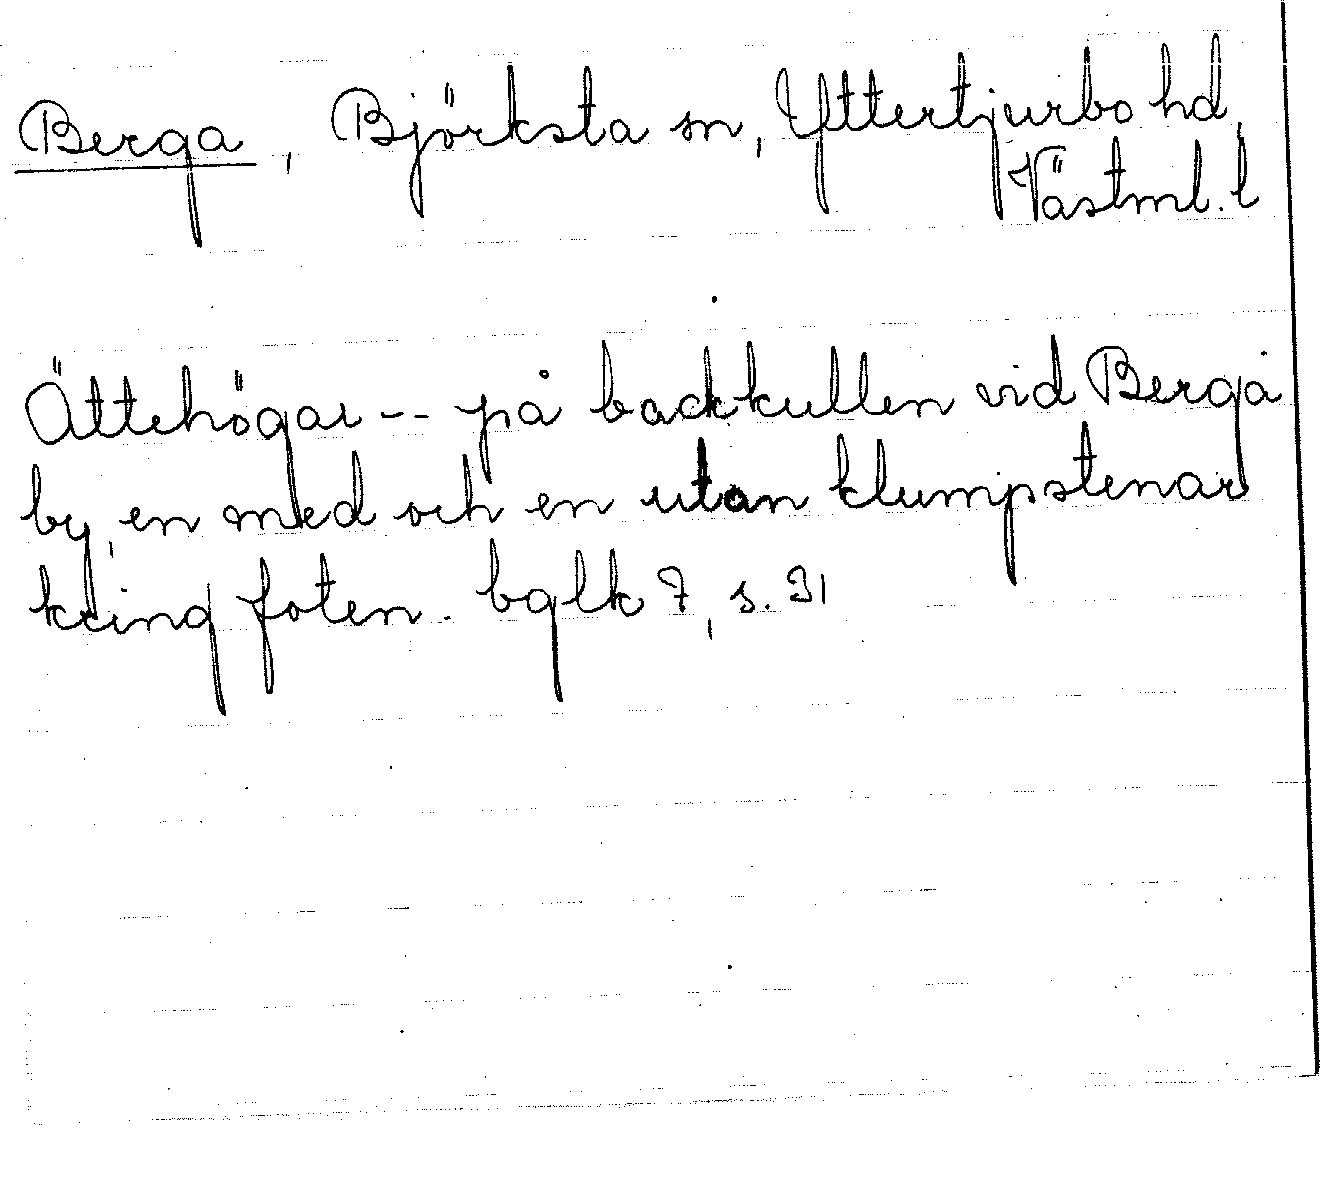 Berga, Björksta sn, Yttertjurbo hd,
Västml. l
Ättehögar -- på backkullen vid Berga
by, en med och en utan klumpstenar
kring foten. bglk 7, s. 31